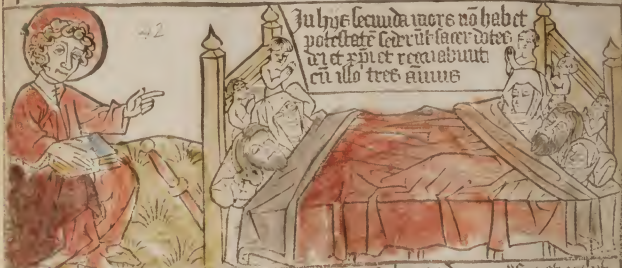 In hys secunda mors nō habet
potestatē sed erūt sacerdotes
dei et xp̄i et regnabunt
cū illo
42